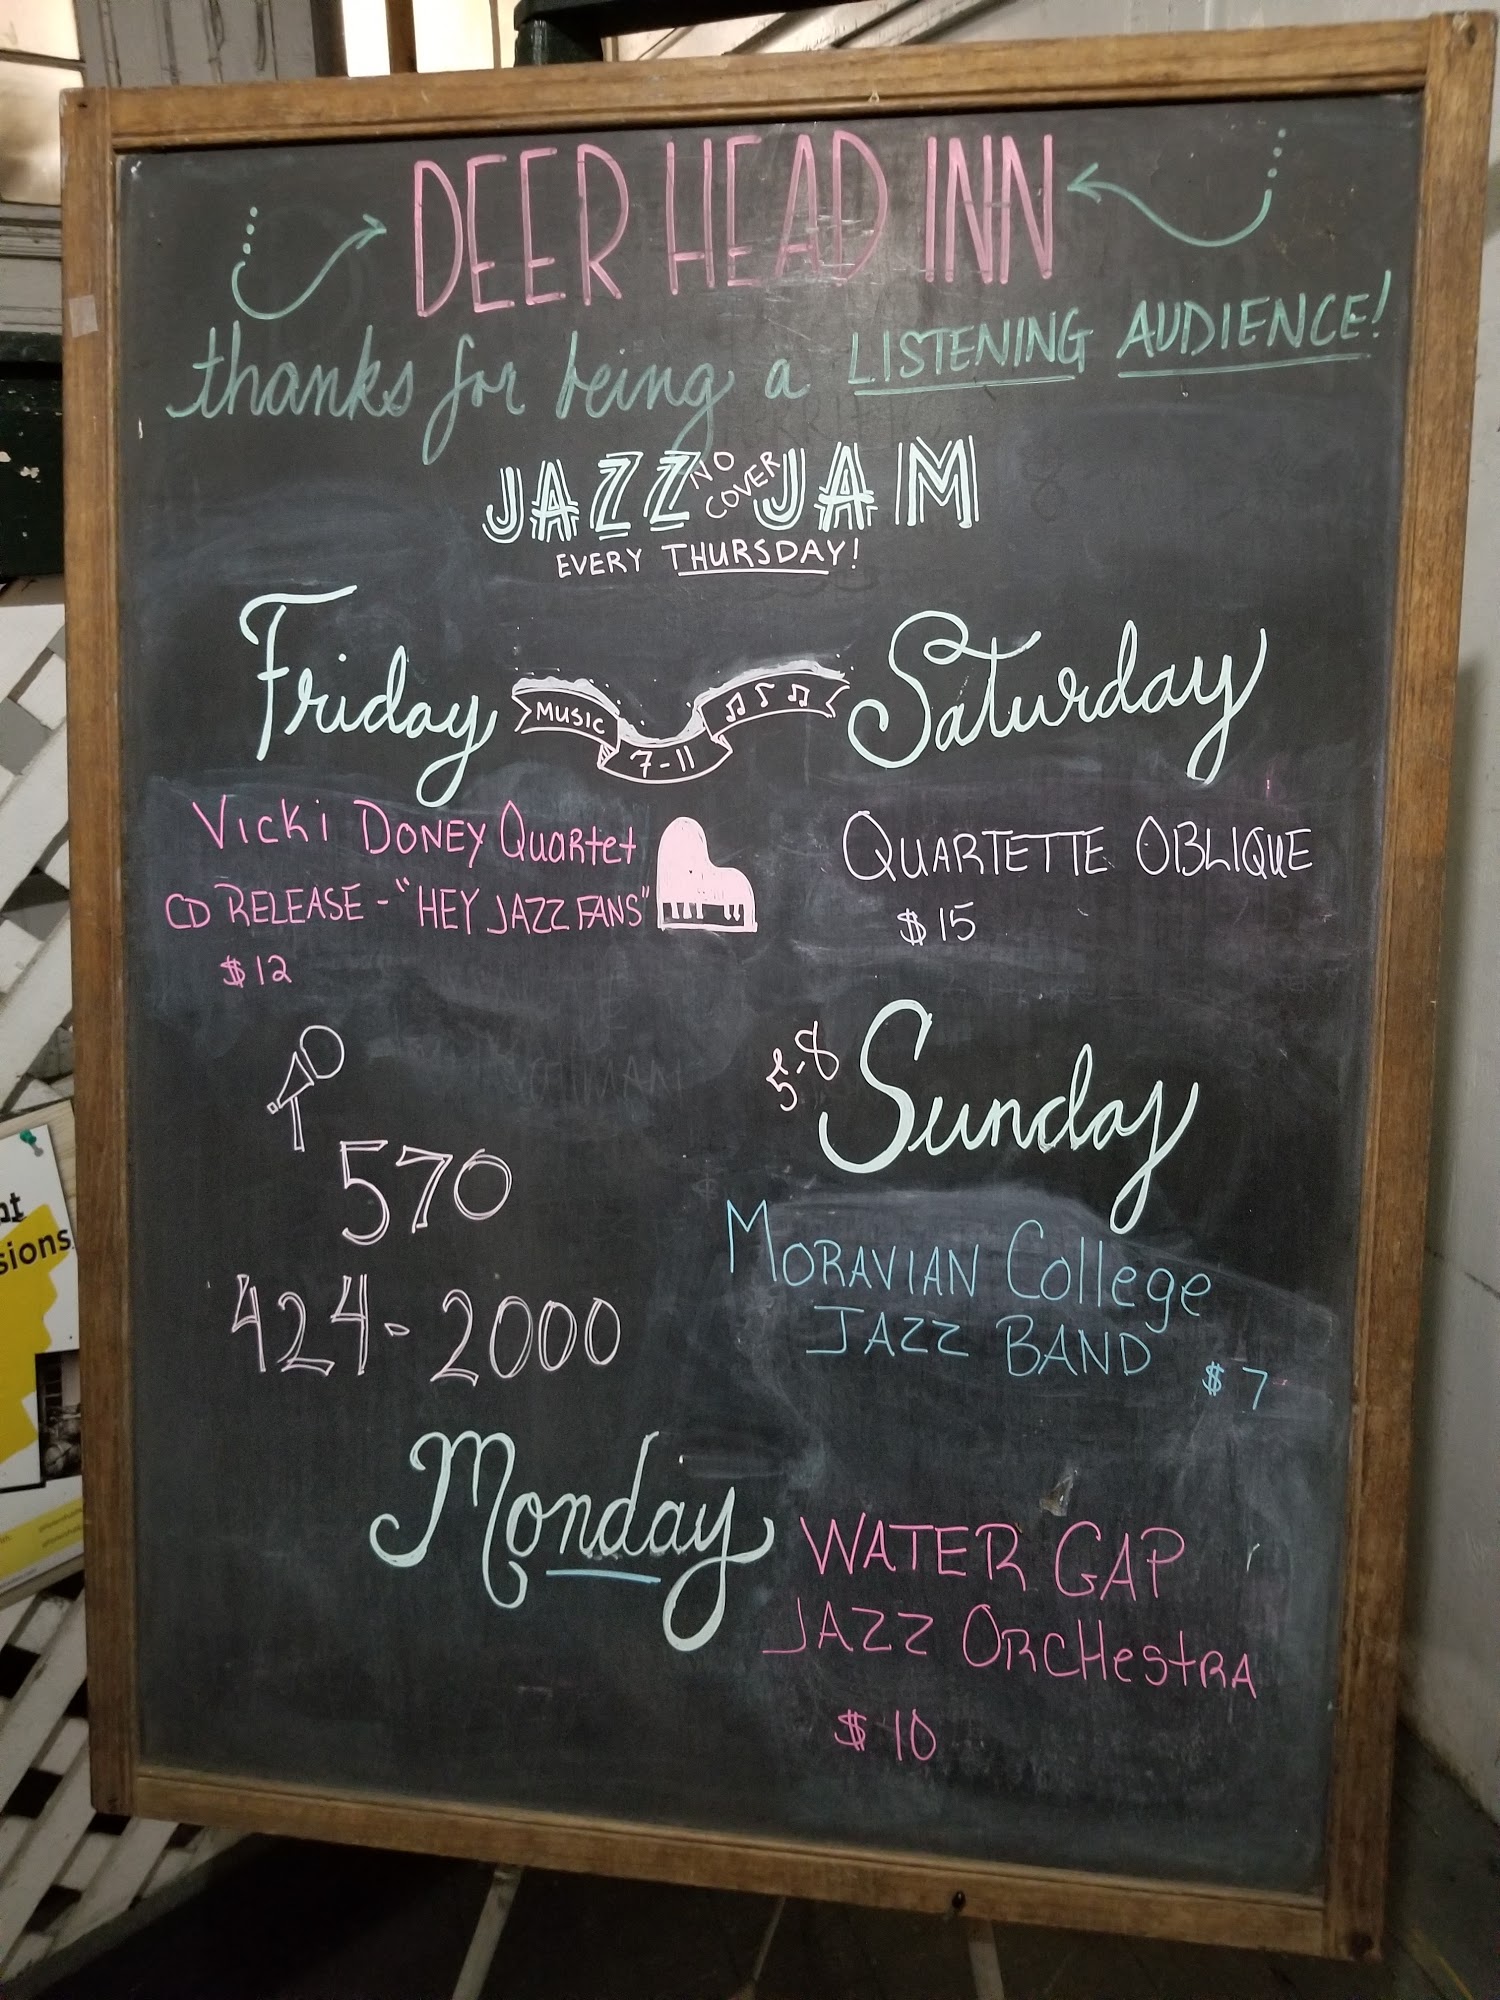 DEER HEAD INN
thanks for being a LISTENING AUDIENCE!
JAZZ NO COVER JAM
EVERY THURSDAY!
Friday
MUSIC
7-11
Saturday
VICKI DONEY QUARTET
CD RELEASE - "HEY JAZZ FANS"
$12
QUARTETTE OBLIQUE
$15
5-8 Sunday
570
424-2000
MORAVIAN College
JAZZ BAND $7
Monday
WATER GAP
JAZZ ORCHESTRA
$10
sions